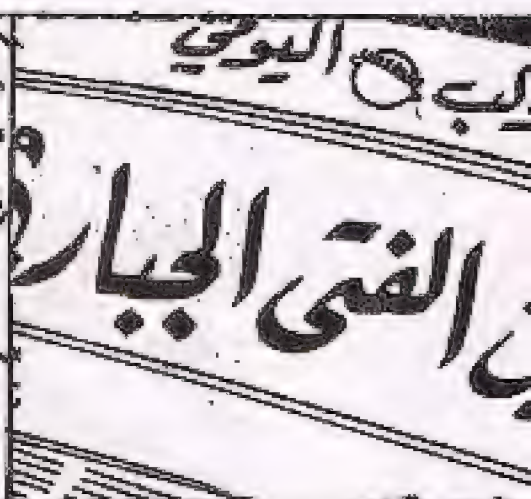 اليومي
الفتى الجبار